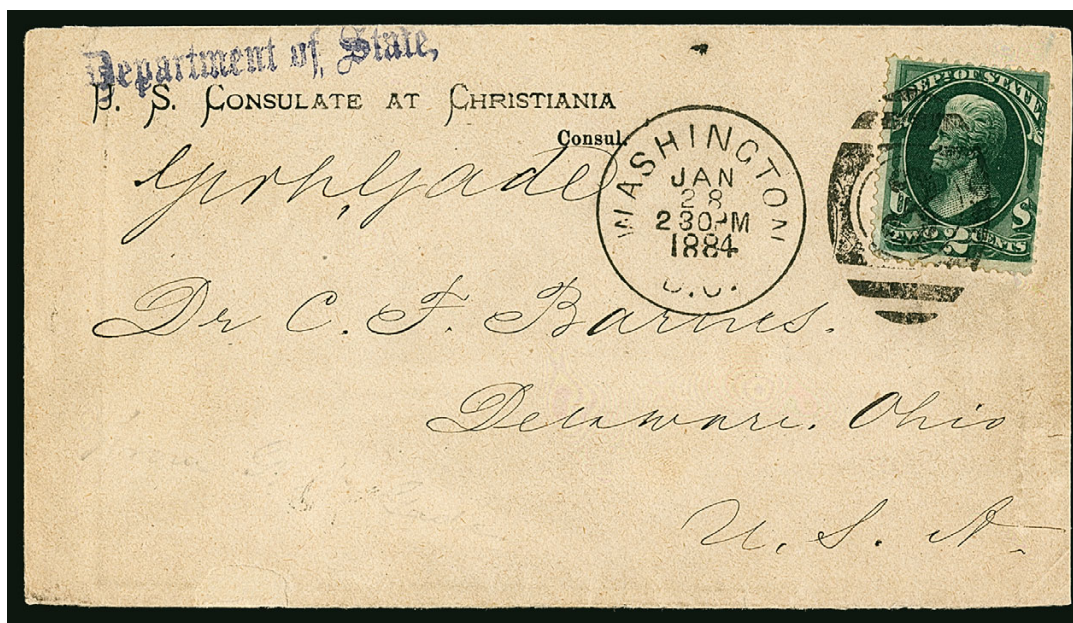 Department of State,
U. S. CONSULATE AT CHRISTIANIA
Consul.
Gade
WASHINGTON
JAN
28
230PM
1884
D.C.
DEP'T OF STATE
TWO 2 CENTS
U S
Dr C. F. Barnes.
Delaware. Ohio
U. S. A.